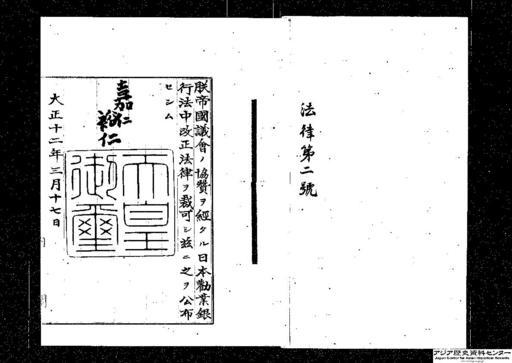 法律第二號
朕帝國議會ノ協贊ヲ經タル日本勸業銀
行法中改正法律ヲ裁可シ茲ニ之ヲ公布
セシム
嘉仁
裕仁
天皇
御璽
大正十二年三月十七日
アジア歴史資料センター
Japan Center for Asian Historical Records